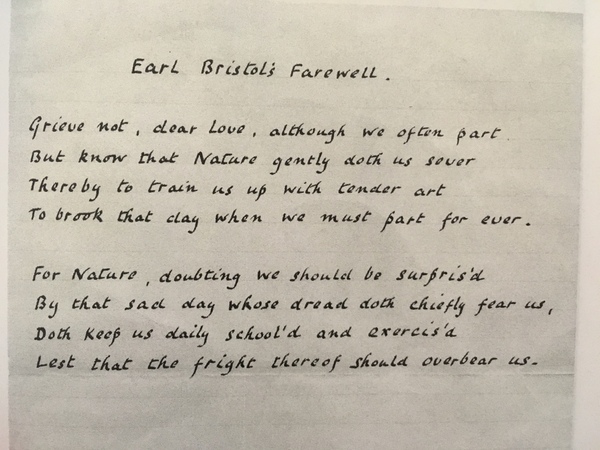 Earl Bristol's Farewell.
Grieve not, dear Love, although we often part
But know that Nature gently doth us sever
Thereby to train us up with tender art
To brook that day when we must part for ever.
For Nature, doubting we should be surpris'd
By that sad day whose dread doth chiefly fear us,
Doth keep us daily school'd and exercis'd
Lest that the fright thereof should overbear us.